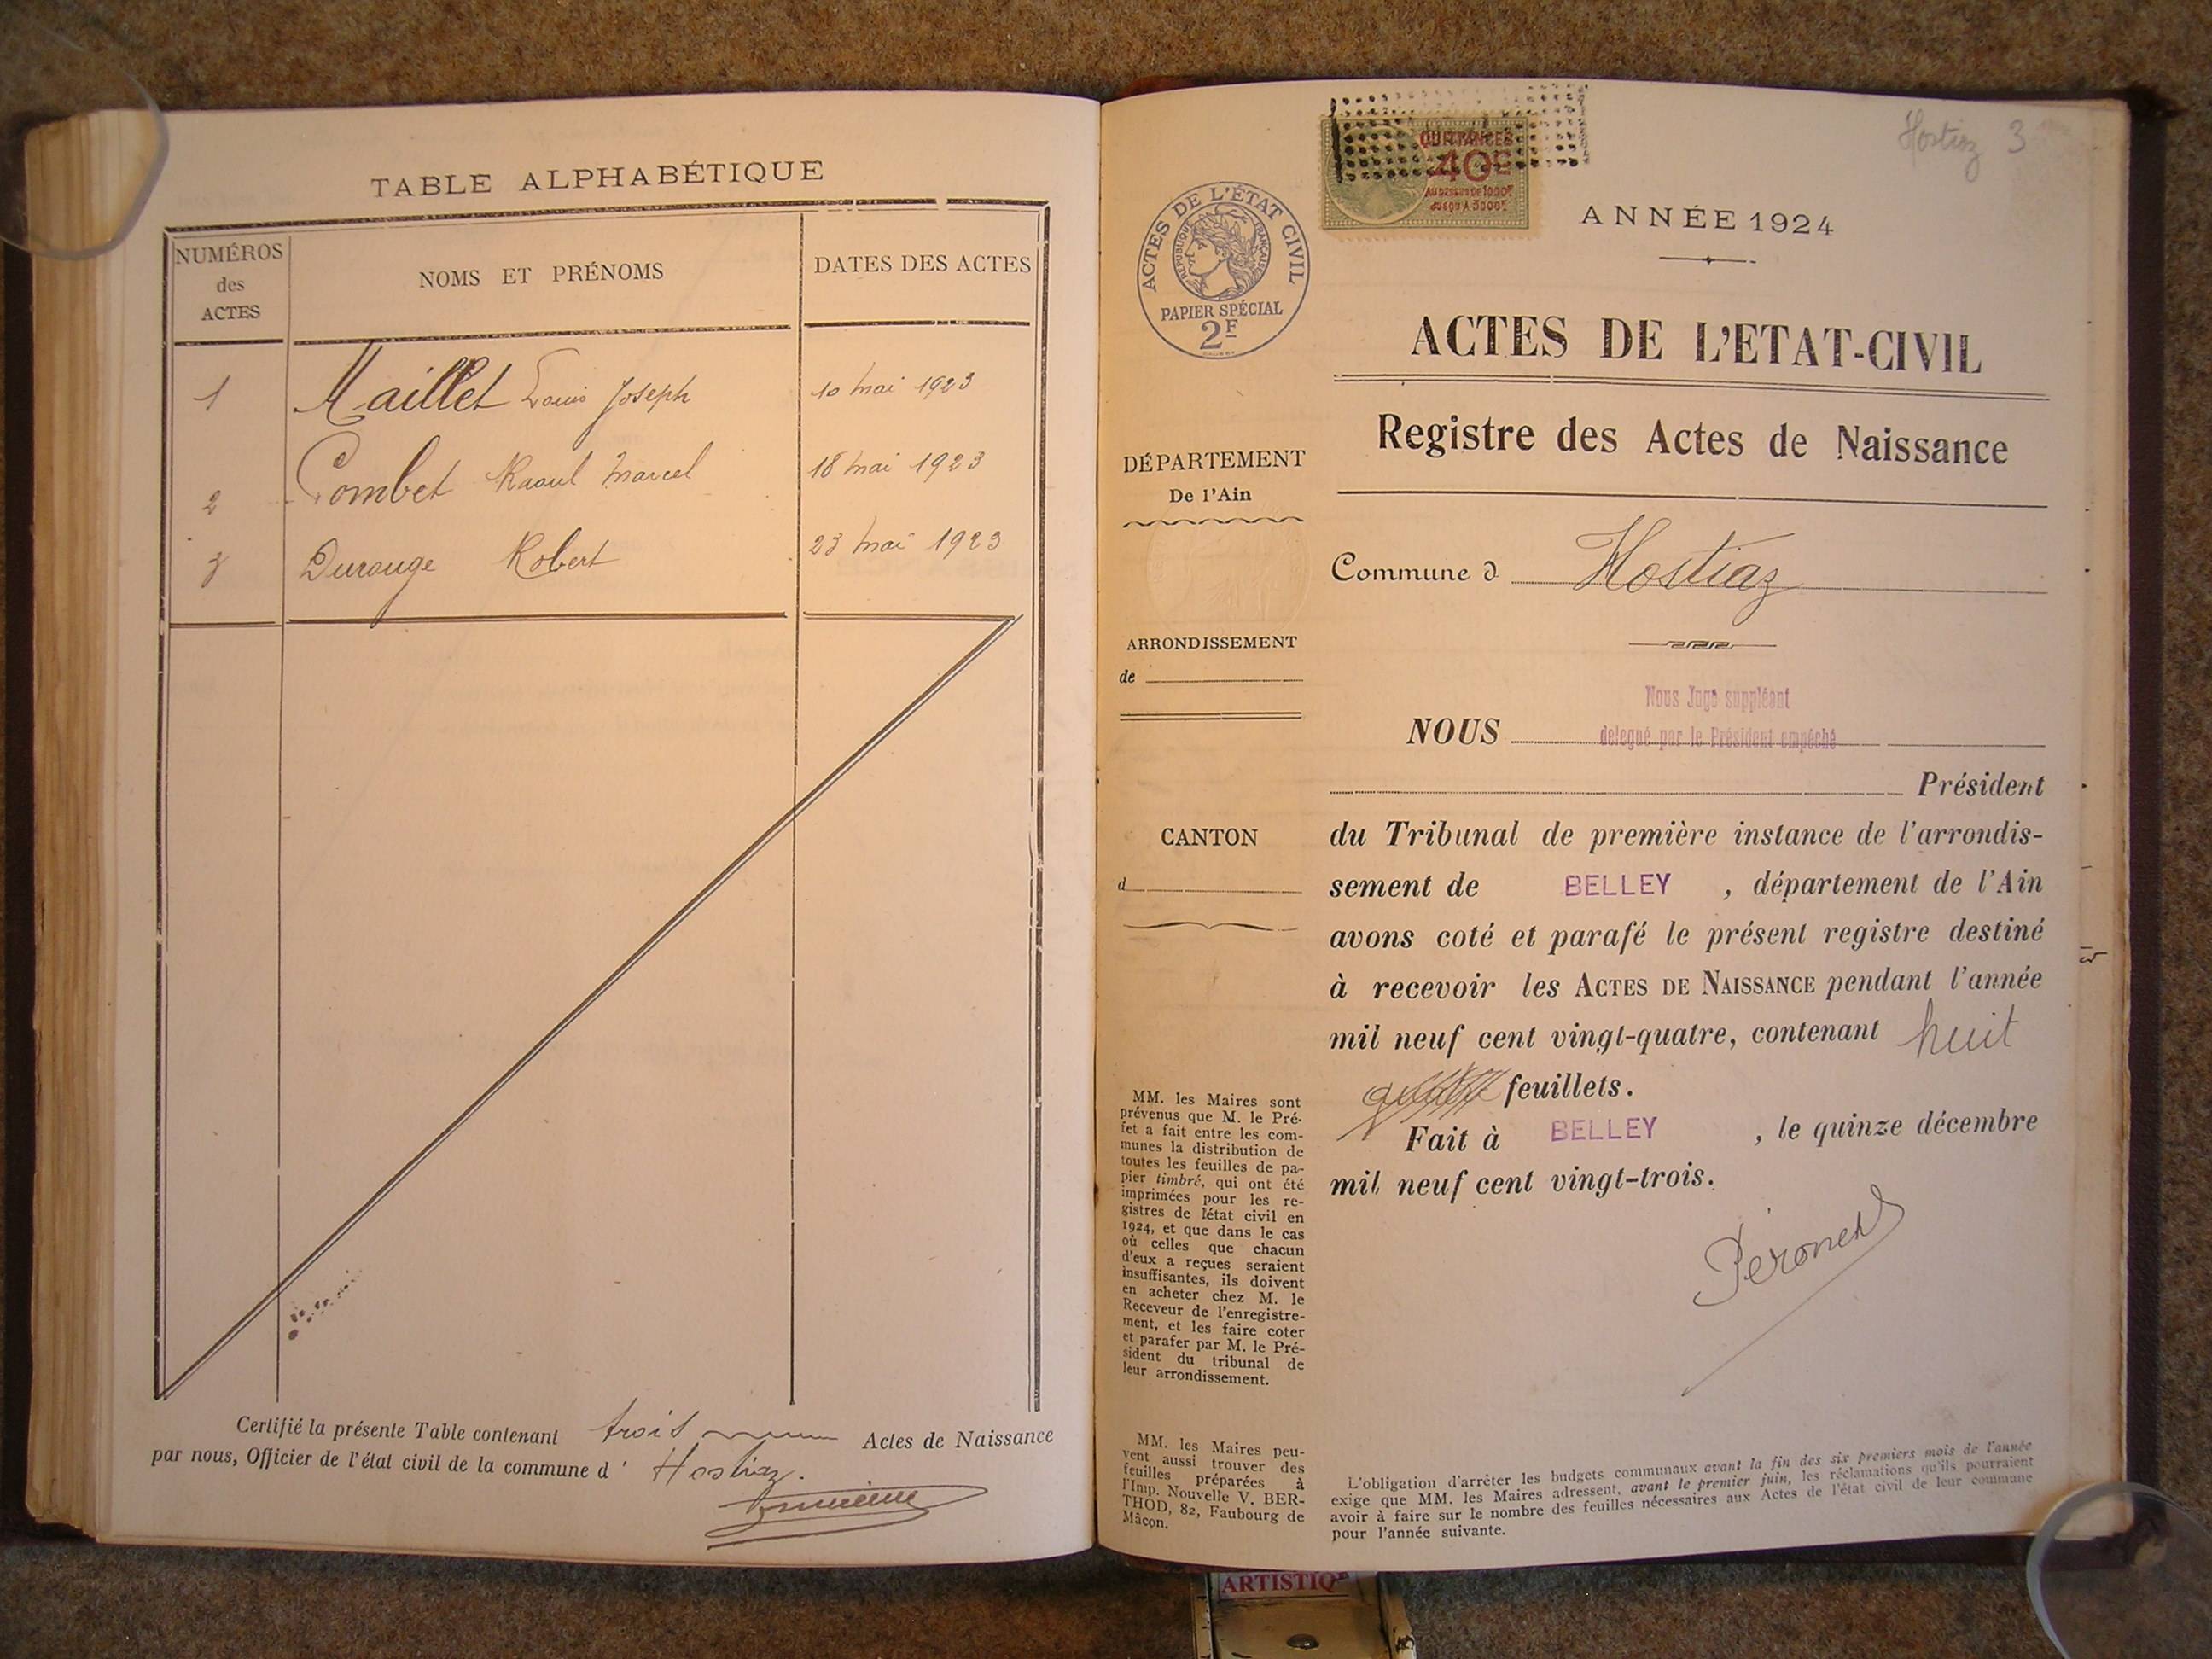 TABLE ALPHABÉTIQUE
NUMÉROS
des
ACTES
NOMS ET PRÉNOMS
DATES DES ACTES
1 Maillet Louis Joseph 10 mai 1923
2 Combet Raoul Marcel 18 mai 1923
3 Durouge Robert 23 mai 1923
Certifié la présente Table contenant trois Actes de Naissance
par nous, Officier de l'état civil de la commune d' Hostiaz.
Hostiaz 3
QUITTANCES
40c
AU DESSUS DE 1000F
JUSQU'A 3000F
ACTES DE L'ÉTAT CIVIL
RÉPUBLIQUE FRANÇAISE
PAPIER SPÉCIAL
2F
ANNÉE 1924
ACTES DE L'ETAT-CIVIL
Registre des Actes de Naissance
DÉPARTEMENT
De l'Ain
Commune d Hostiaz
ARRONDISSEMENT
de
CANTON
d
Nous Juge suppléant
NOUS délégué par le Président empêché
Président
du Tribunal de première instance de l'arrondis-
sement de BELLEY , département de l'Ain
avons coté et parafé le présent registre destiné
à recevoir les ACTES DE NAISSANCE pendant l'année
mil neuf cent vingt-quatre, contenant huit
feuillets.
Fait à BELLEY , le quinze décembre
mil neuf cent vingt-trois.
MM. les Maires sont
prévenus que M. le Pré-
fet a fait entre les com-
munes la distribution de
toutes les feuilles de pa-
pier timbré, qui ont été
imprimées pour les re-
gistres de létat civil en
1924, et que dans le cas
où celles que chacun
d'eux a reçues seraient
insuffisantes, ils doivent
en acheter chez M. le
Receveur de l'enregistre-
ment, et les faire coter
et parafer par M. le Pré-
sident du tribunal de
leur arrondissement.
MM. les Maires peu-
vent aussi trouver des
feuilles préparées à
l'Imp. Nouvelle V. BER-
THOD, 82, Faubourg de
Mâcon.
L'obligation d'arrêter les budgets communaux avant la fin des six premiers mois de l'année
exige que MM. les Maires adressent, avant le premier juin, les réclamations qu'ils pourraient
avoir à faire sur le nombre des feuilles nécessaires aux Actes de l'état civil de leur commune
pour l'année suivante.
ARTISTIQ